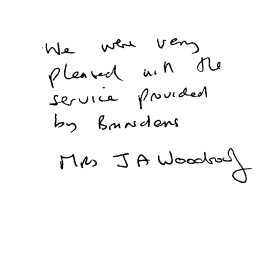 We were very
pleased with the
service provided
by
Mrs J A